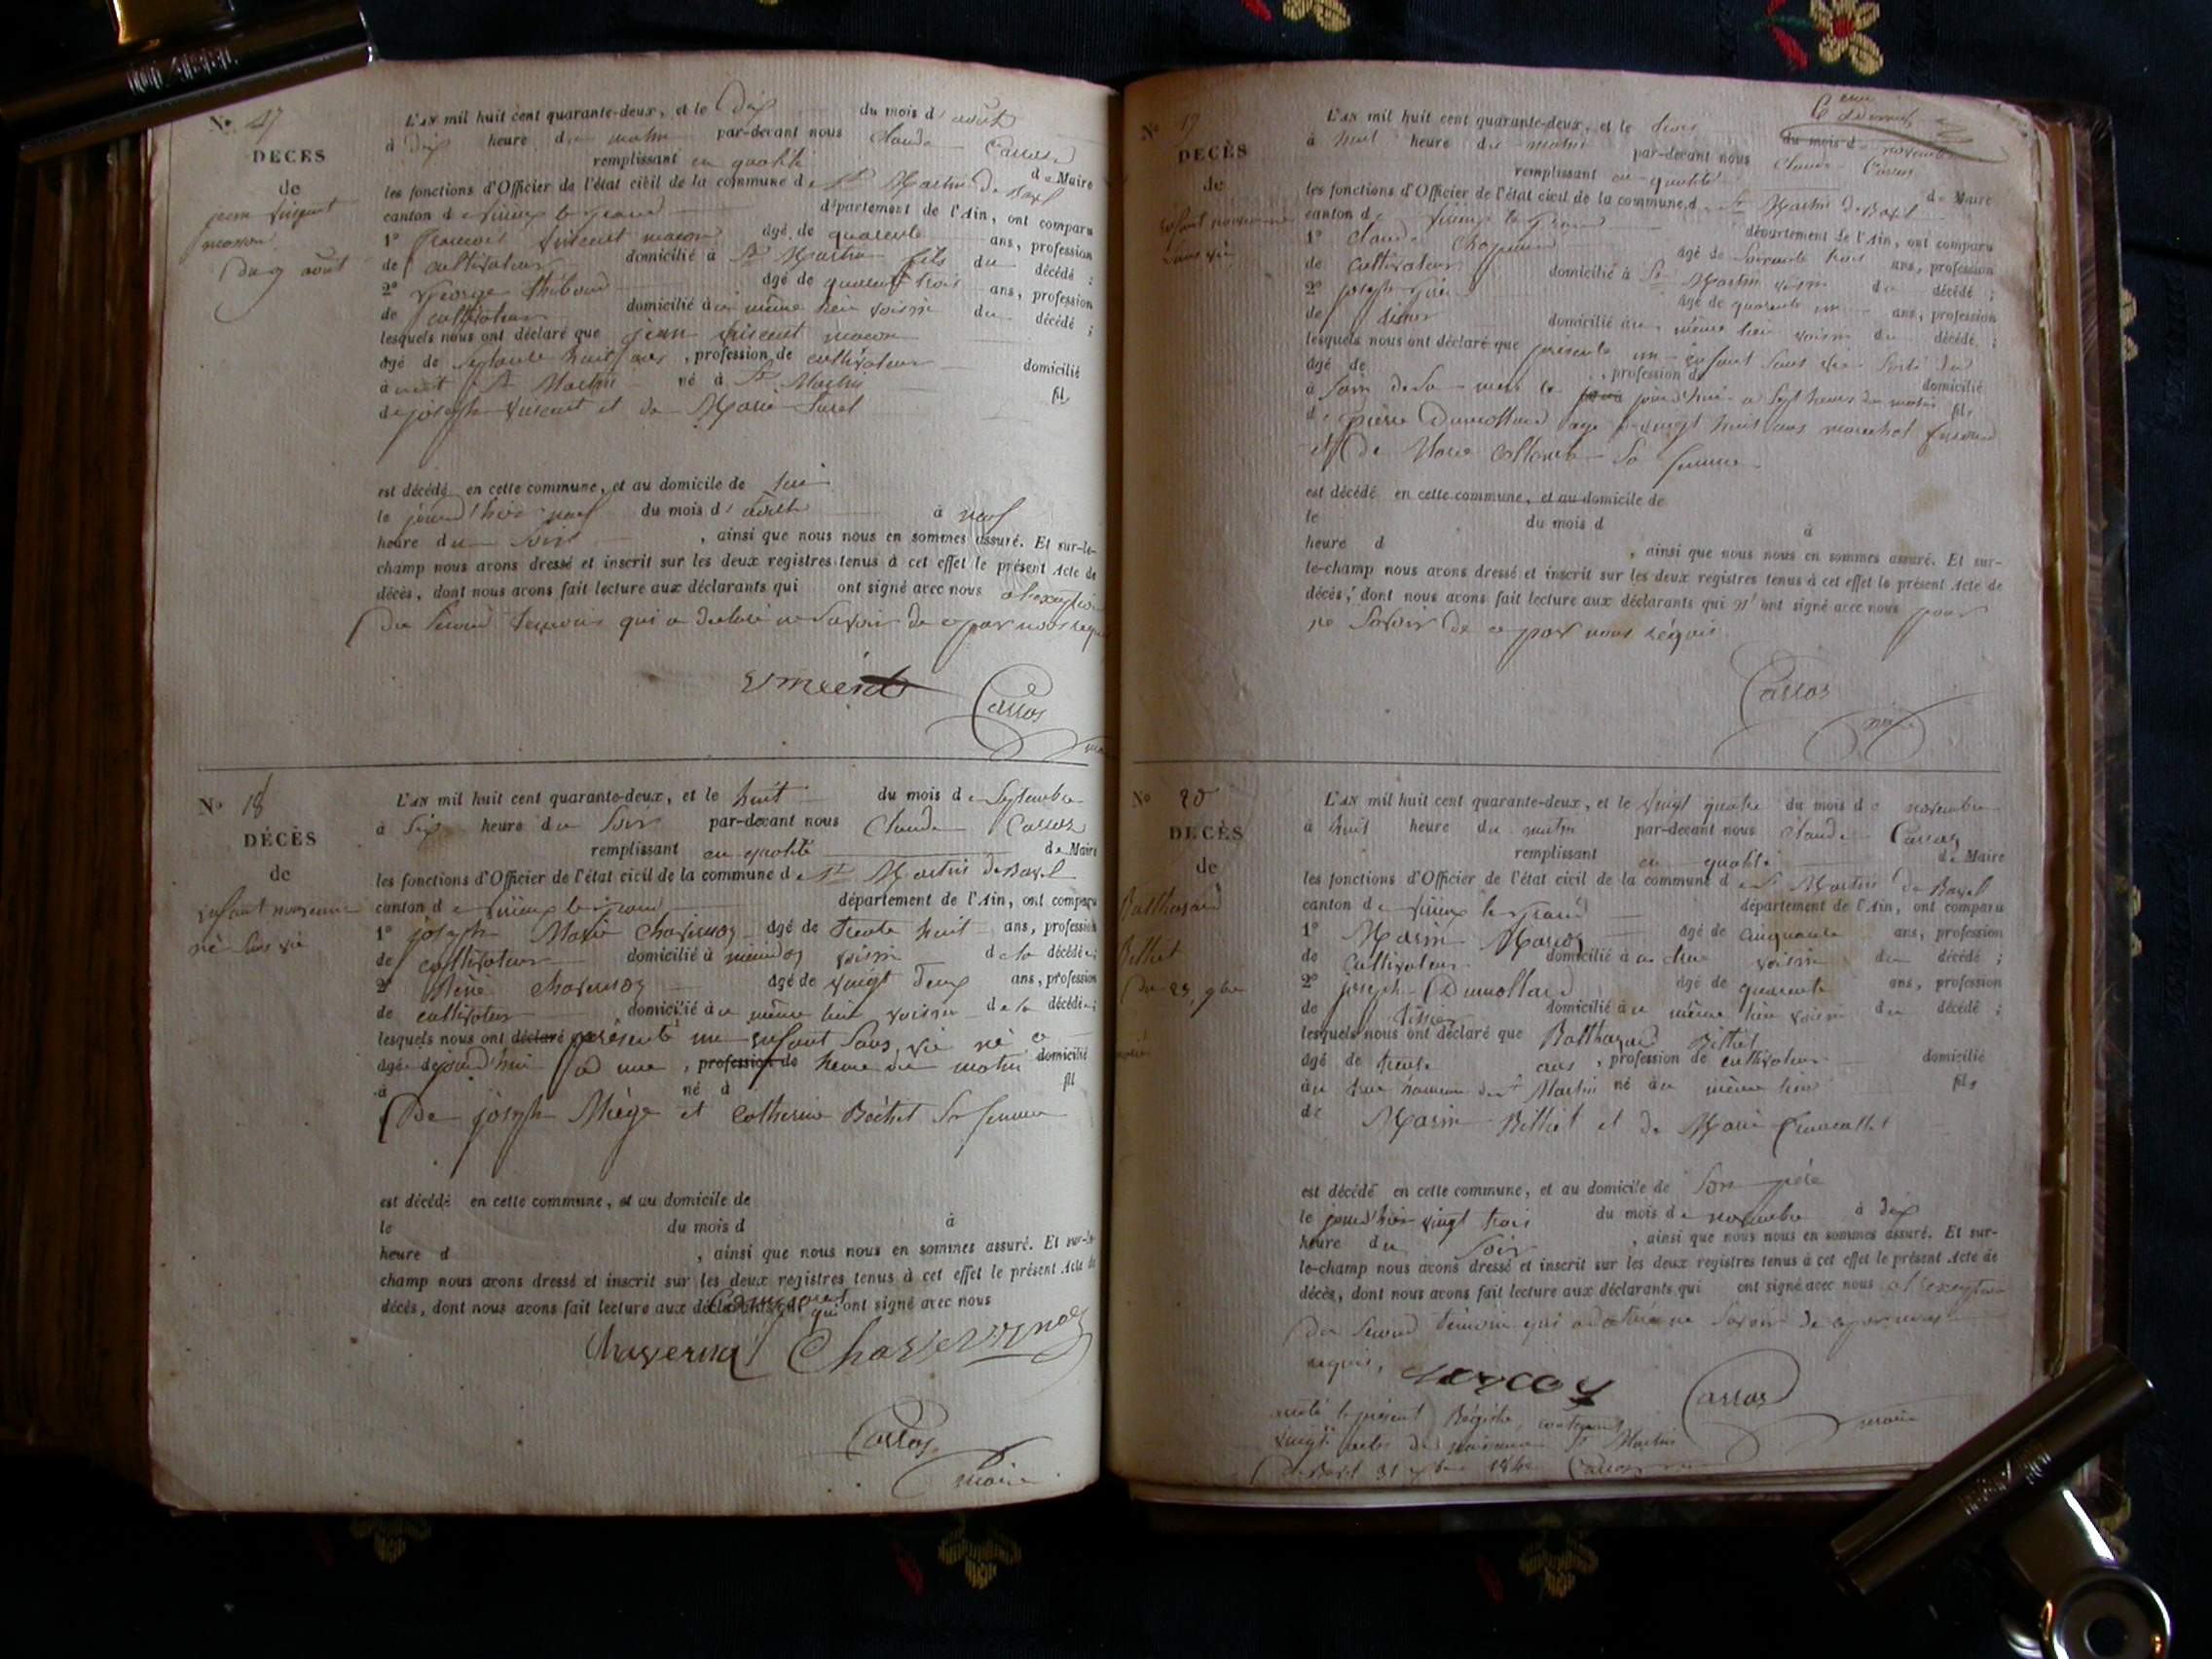 N° 17
DECÈS
de
jean Vincent
macon
Du 9 août
L'AN mil huit cent quarante-deux, et le dix du mois d' août
à dix heure du matin par-devant nous Claude Carros
remplissant en qualité de Maire
les fonctions d'Officier de l'état civil de la commune de St Martin de Bavel
canton de Virieux le grand département de l'Ain, ont comparu
1° francois Vincent macon âgé de quarente ans, profession
de cultivateur domicilié à St Martin fils du décédé ;
2° George Thiboud âgé de quarente trois ans, profession
de cultivateur domicilié au même lieu voisin du décédé ;
lesquels nous ont déclaré que jean Vincent macon
âgé de Septante huit ans, profession de cultivateur domicilié
à St Martin né à St Martin fil
de joseph Vincent et de Marie
est décédé en cette commune, et au domicile de lui
le jourd'hier neuf du mois d' août à neuf
heure du Soir, ainsi que nous nous en sommes assuré. Et sur-le-
champ nous avons dressé et inscrit sur les deux registres tenus à cet effet le présent Acte de
décès, dont nous avons fait lecture aux déclarants qui ont signé avec nous a l'exception
Du Second temoin qui a declaré ne Savoir de ce par nous requis
Carros
N° 18
DÉCÈS
de
enfant nouveau
né Sans vie
L'AN mil huit cent quarante-deux, et le huit du mois de Septembre
à Six heure du Soir par-devant nous Claude Carros
remplissant en qualité de Maire
les fonctions d'Officier de l'état civil de la commune de St Martin de Bavel
canton de Virieux le grand département de l'Ain, ont comparu
1° joseph Marie Charvernoz âgé de trente huit ans, profession
de cultivateur domicilié à voisin de la décédée ;
2° René Charvernoz âgé de vingt deux ans, profession
de cultivateur domicilié au même lieu voisin de la décédée ;
lesquels nous ont déclaré présenté un enfant Sans vie né ce
âgé de jourd'hui a une, profession de heure du matin domicilié
à né à fil
De joseph Miège et Catherine Béchet Sa femme
est décédé en cette commune, et au domicile de
le du mois d à
heure d , ainsi que nous nous en sommes assuré. Et sur-le-
champ nous avons dressé et inscrit sur les deux registres tenus à cet effet le présent Acte de
décès, dont nous avons fait lecture aux qui ont signé avec nous
Carros
maire
N° 19
DECÈS
de
enfant nouveau né
Sans vie
L'AN mil huit cent quarante-deux, et le trois du mois de novembre
à huit heure du matin par-devant nous Claude Carros
remplissant en qualité de Maire
les fonctions d'Officier de l'état civil de la commune de St Martin de Bavel
canton de Virieux le grand département de l'Ain, ont comparu
1° Claude âgé de Soixante trois ans, profession
de cultivateur domicilié à St Martin voisin du décédé ;
2° joseph âgé de quarente un ans, profession
de domicilié au même lieu voisin du décédé ;
lesquels nous ont déclaré que présenté un enfant Sans vie Sorti du
âgé de , profession de domicilié
à Sein de Sa mere ce jourd'hui a Sept heures du matin fils
de pierre Dumollard agé de vingt huit ans marechal ferrand
et De Marie Sa femme
est décédé en cette commune, et au domicile de
le du mois d à
heure d , ainsi que nous nous en sommes assuré. Et sur-
le-champ nous avons dressé et inscrit sur les deux registres tenus à cet effet le présent Acte de
décès, dont nous avons fait lecture aux déclarants qui n'ont signé avec nous pour
ne Savoir de ce par nous requis
Carros
N° 20
DECÈS
de
Balthazard
Billiet
Du 23 9bre
L'AN mil huit cent quarante-deux, et le vingt quatre du mois de novembre
à huit heure du matin par-devant nous Claude Carros
remplissant en qualité de Maire
les fonctions d'Officier de l'état civil de la commune de St Martin de Bavel
canton de Virieux le grand département de l'Ain, ont comparu
1° Marin âgé de cinquante ans, profession
de cultivateur domicilié à voisin du décédé ;
2° joseph Dumollard âgé de quarente ans, profession
de domicilié au même lieu voisin du décédé ;
lesquels nous ont déclaré que Balthazard Billiet
âgé de trente ans, profession de cultivateur domicilié
au St Martin né au même lieu fils
de Marin Billiet et de Marie
est décédé en cette commune, et au domicile de Son père
le jourd'hier vingt trois du mois de novembre à dix
heure du Soir, ainsi que nous nous en sommes assuré. Et sur-
le-champ nous avons dressé et inscrit sur les deux registres tenus à cet effet le présent Acte de
décès, dont nous avons fait lecture aux déclarants qui ont signé avec nous a l'exception
Du Second témoin qui a declaré ne Savoir de ce par nous
requis,
Carros
maire
le présent Régistre contenant
vingt actes de St Martin
de Bavel 31 1842 Carros